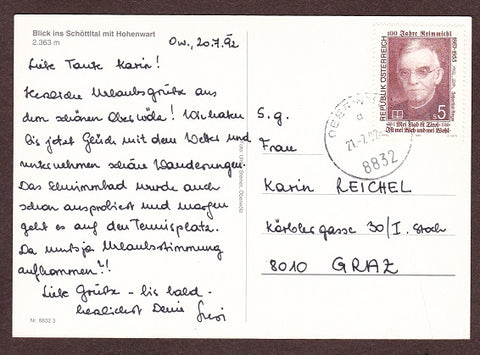 Blick ins Schöttltal mit Hohenwart
2.363 m
Ow., 20.7.92
Liebe Tante Karin!
Herzliche Urlaubsgrüße aus
dem schönen Oberwölz! Wir haben
bis jetzt Glück mit dem Wetter und
unternehmen schöne Wanderungen.
Das Schwimmbad wurde auch
schon ausprobiert und morgen
geht es auf den Tennisplatz.
Da muß ja Urlaubsstimmung
aufkommen!!
Liebe Grüße - bis bald -
herzlichst Deine Susi
Nr. 8832 3
100 Jahre Reimmichl
REPUBLIK ÖSTERREICH
S 5
8832
S.g.
Frau
Karin REICHEL
Körblergasse 30/I. Stock
8010 GRAZ